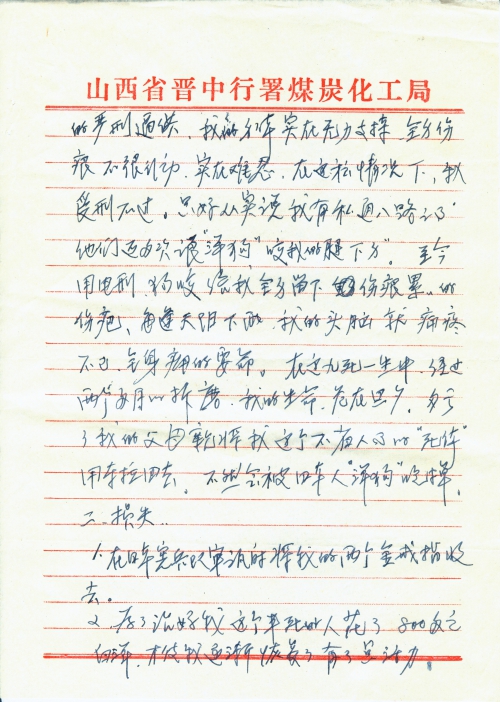 山西省晋中行署煤炭化工局
的严刑逼供，我的身体实在无力支撑，全身伤
痕不很引动，实在难忍，在这种情况下，我
受刑不过。只好从实说我有私通八路之事
他们还多次让"洋狗"咬我的腿下方。至今
用电刑、狗咬给我全身留下伤痕累々的
伤疤，每逢天阴下雨，我的头脑就痛疼
不已，全身痛的要命。在这九死一生中，经过
两个多月的折磨，我的生命，危在旦夕，多亏
了我的父母亲将我这个不省人事的"死体"
用车拉回去。不然会被日军人"洋狗"吃掉。
二、损失：
1、在日军宪兵队审讯时将我的两个金戒指收
去。
2、为了治好我这个半死的人花了800多元
白洋，才使我逐渐恢复了有了点活力。